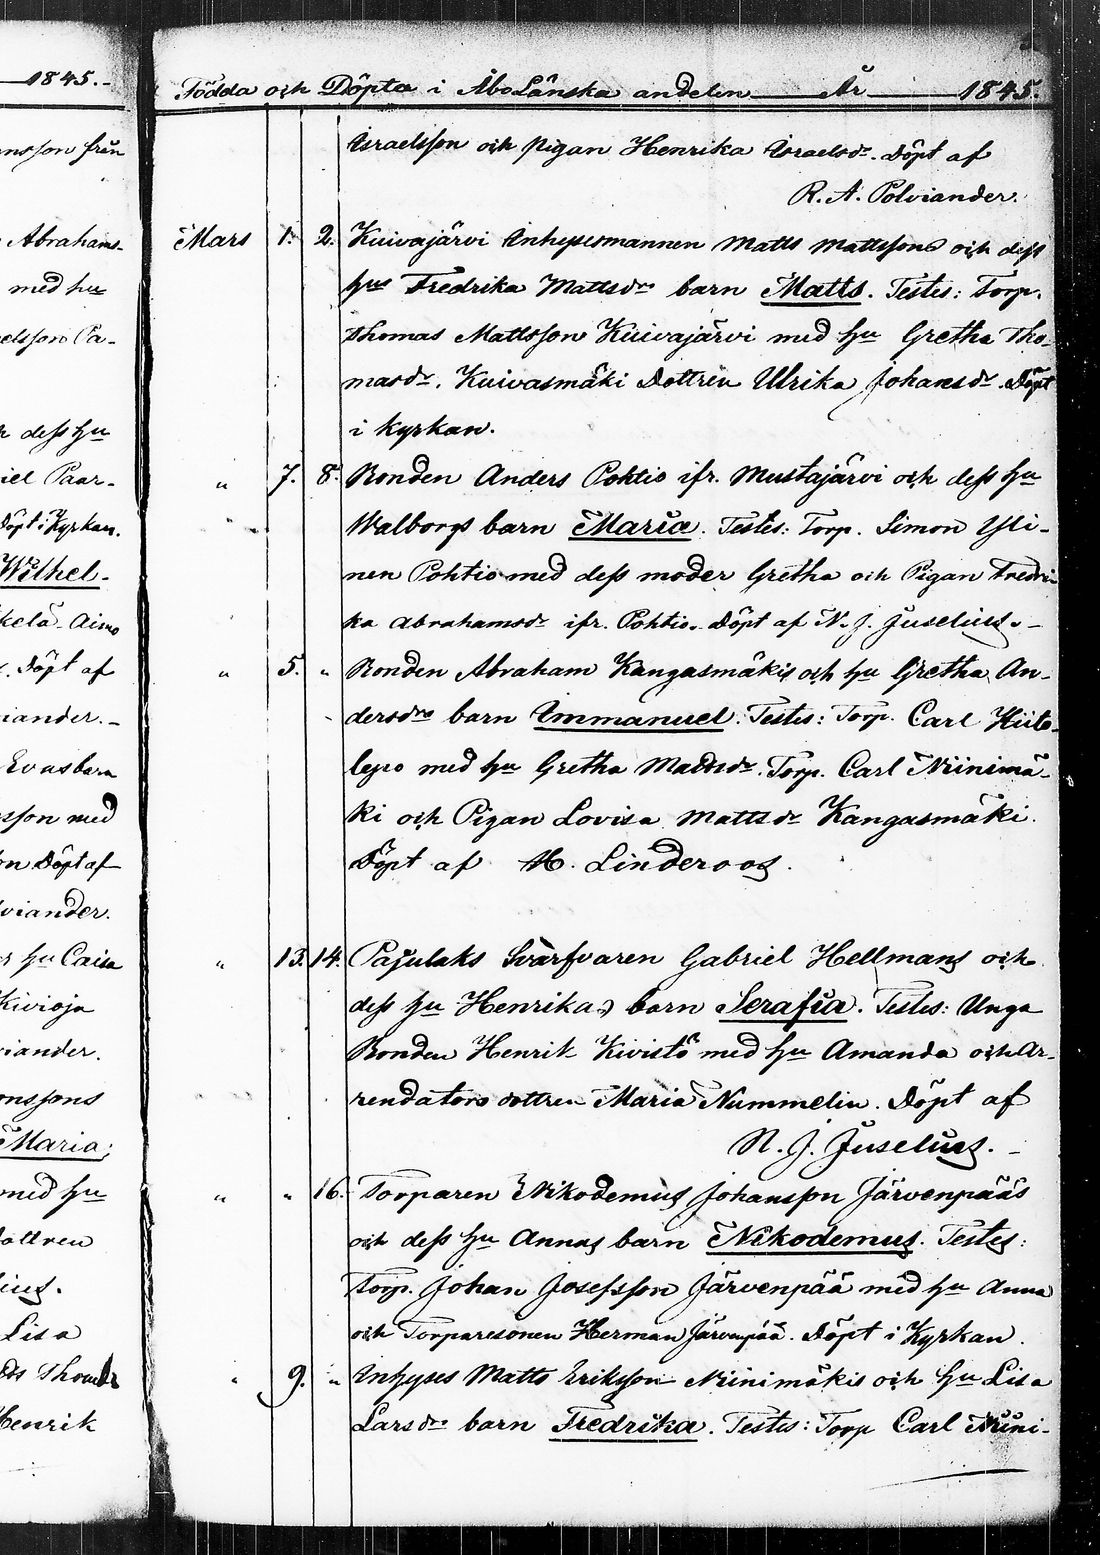 1845.-
nsson från
Abrahams-
med hu
elsson Pa-
h dess hu
iel Paar-
Döpt i Kyrkan.
Wilhel-
kelä Aimo
Döpt af
iander.-
Evas barn
sson med
on Döpt af
viander.
hu Caisa
Kivioja
viander.
onssons
Maria;
med hu
dottren
lius.
Lisa
Henrik
Födda och Döpta i Åbo Länska andelen År 1845.
Israelsson och pigan Henrika Israelsdr. Döpt af
R. A. Polviander.
Mars 1. 2. Kuivajärvi Inhysesmannen Matts Mattssons och dess
hus Fredrika Mattsdrs barn Matts. Testes: Torp.
Thomas Mattsson Kuivajärvi med hu Gretha Tho-
masdr. Kuivasmäki Dottren Ulrika Johansdr. Döpt
i kyrkan.
" 7. 8. Bonden Anders Pohtio ifr. Mustajärvi och dess hu
Walborgs barn Maria. Testes: Torp. Simon Yli-
nen Pohtio med dess moder Gretha och Pigan Fredri-
ka Abrahamsdr ifr. Pohtio. Döpt af N. J. Juselius.-
" 5. " Bonden Abraham Kangasmäkis och hu Gretha An-
dersdrs barn Immanuel. Testes: Torp. Carl Hiite-
lepo med hu Gretha Mattsdr. Torp. Carl Niinimä-
ki och Pigan Lovisa Mattsdr Kangasmäki.
Döpt af M. Linderoos.
" 13. 14. Pajulaks Svarfvaren Gabriel Hellmans och
dess hu Henrikas barn Serafia. Testes: Unga
Bonden Henrik Kivistö med hu Amanda och Ar-
rendators dottren Maria Nummelin. Döpt af
N. J. Juselius.-
" " 16. Torparen Nikodemus Johansson Järvenpääs
och dess hu Annas barn Nikodemus. Testes:
Torp. Johan Josefsson Järvenpää med hu Anna
och Torparesonen Herman Järvenpää. Döpt i Kyrkan.
" 9. " Inhyses Matts Eriksson Niinimäkis och hu Lisa
Larsdrs barn Fredrika. Testes: Torp Carl Niini-